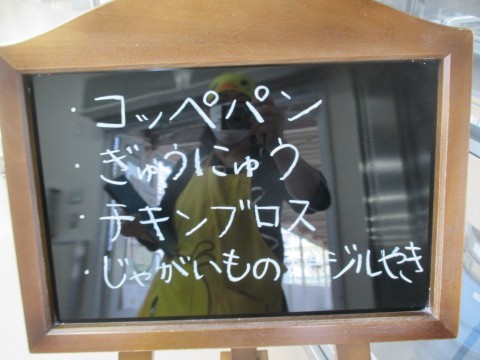 ・コッペパン
・ぎゅうにゅう
・チキンブロス
・じゃがいもの ジルやき